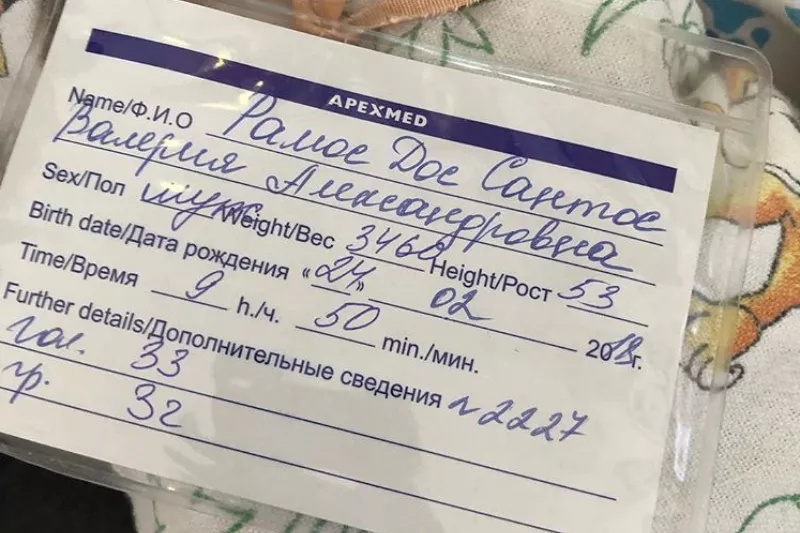 APEXMED
Name/Ф.И.О Рамос Дос Сантос
Валерия Александровна
Sex/Пол муж Weight/Вес 3460 Height/Рост 53
Birth date/Дата рождения «24» 02 2018г.
Time/Время 9 h./ч. 50 min./мин.
Further details/Дополнительные сведения n2227
гол. 33
гр. 32